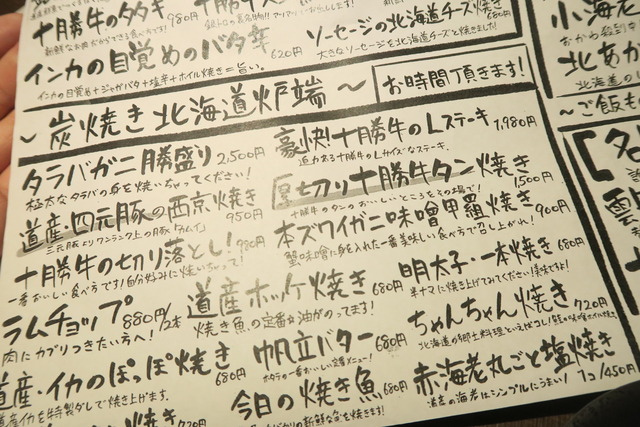 十勝牛のタタキ 980円
インカの目覚めのバタ辛 620円
インカの目覚め+ジャガバタ+塩辛+ホイル焼き=旨い。
ソーセージの北海道チーズ焼き 680円
大きなソーセージを北海道チーズと焼きました!
~炭焼き北海道炉端~
お時間頂きます!
タラバガニ勝盛り 2,500円
極太なタラバの身を焼いちゃってください!
道産・四元豚の西京焼き 950円
三元豚よりワンランク上の豚
十勝牛の切り落とし! 980円
一番おいしい食べ方です!自分好みに焼いちゃって!
ラムチョップ 880円/2本
肉にカブリつきたい方へ!
道産・イカのぽっぽ焼き 680円
道産イカを特製ダレで焼き上げます。
豪快!十勝牛のLステーキ 1,980円
迫力ある十勝牛のLサイズなステーキ。
厚切り十勝牛タン焼き 1,500円
十勝牛のタンのおいしいところをその場で!
本ズワイガニ味噌甲羅焼き 900円
蟹味噌に身を入れた一番美味しい食べ方で召し上がれ!
道産ホッケ焼き 680円
焼き魚の定番☆油がのってます!
明太子・一本焼き 680円
半ナマに焼き上げてみてください!美味ですよ!
帆立バター 680円
ホタテの一番おいしい定番メニュー!
ちゃんちゃん焼き 720円
今日の焼き魚 680円
赤海老丸ごと塩焼き 1コ/450円
道産の海老はシンプルにうまい!
小海老
北あか
~ご飯も